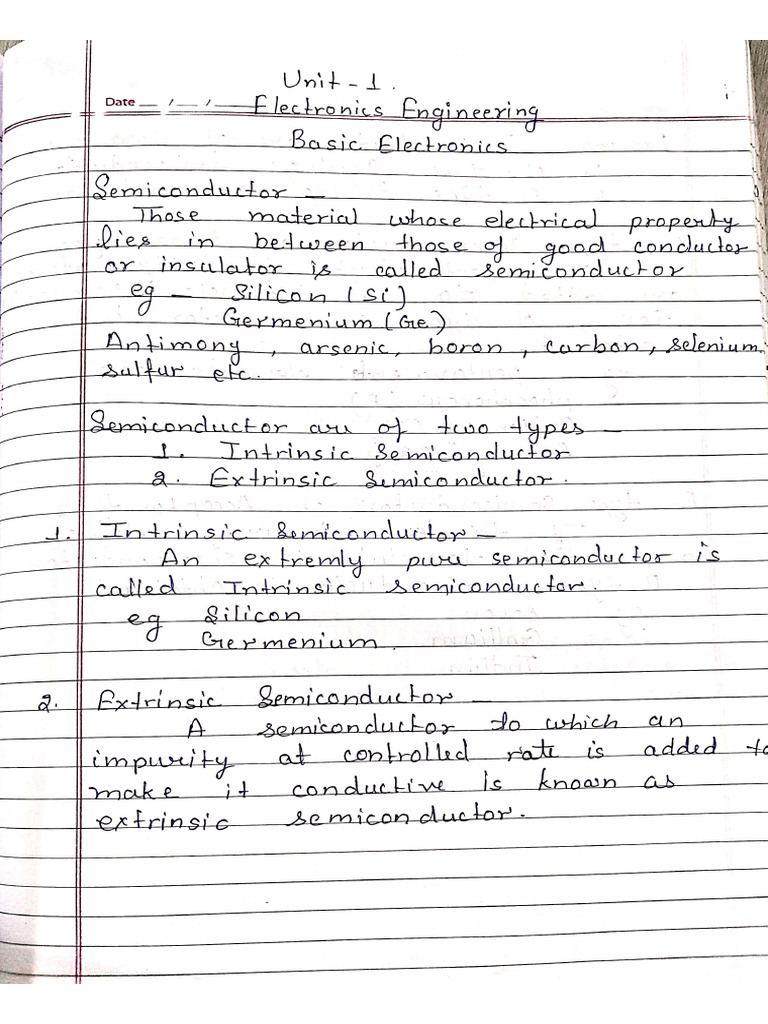 Unit - 1.
Date __ / __ / __ Electronics Engineering
Basic Electronics
Semiconductor -
Those material whose electrical property
lies in between those of good conductor
or insulator is called semiconductor
eg - Silicon (Si)
Germenium (Ge)
Antimony, arsenic, boron, carbon, selenium
sulfur etc.
Semiconductor are of two types -
1. Intrinsic Semiconductor
2. Extrinsic Semiconductor.
1. Intrinsic Semiconductor -
An extremly pure semiconductor is
called Intrinsic semiconductor.
eg Silicon
Germenium.
2. Extrinsic Semiconductor -
A semiconductor to which an
impurity at controlled rate is added to
make it conductive is known as
extrinsic semiconductor.